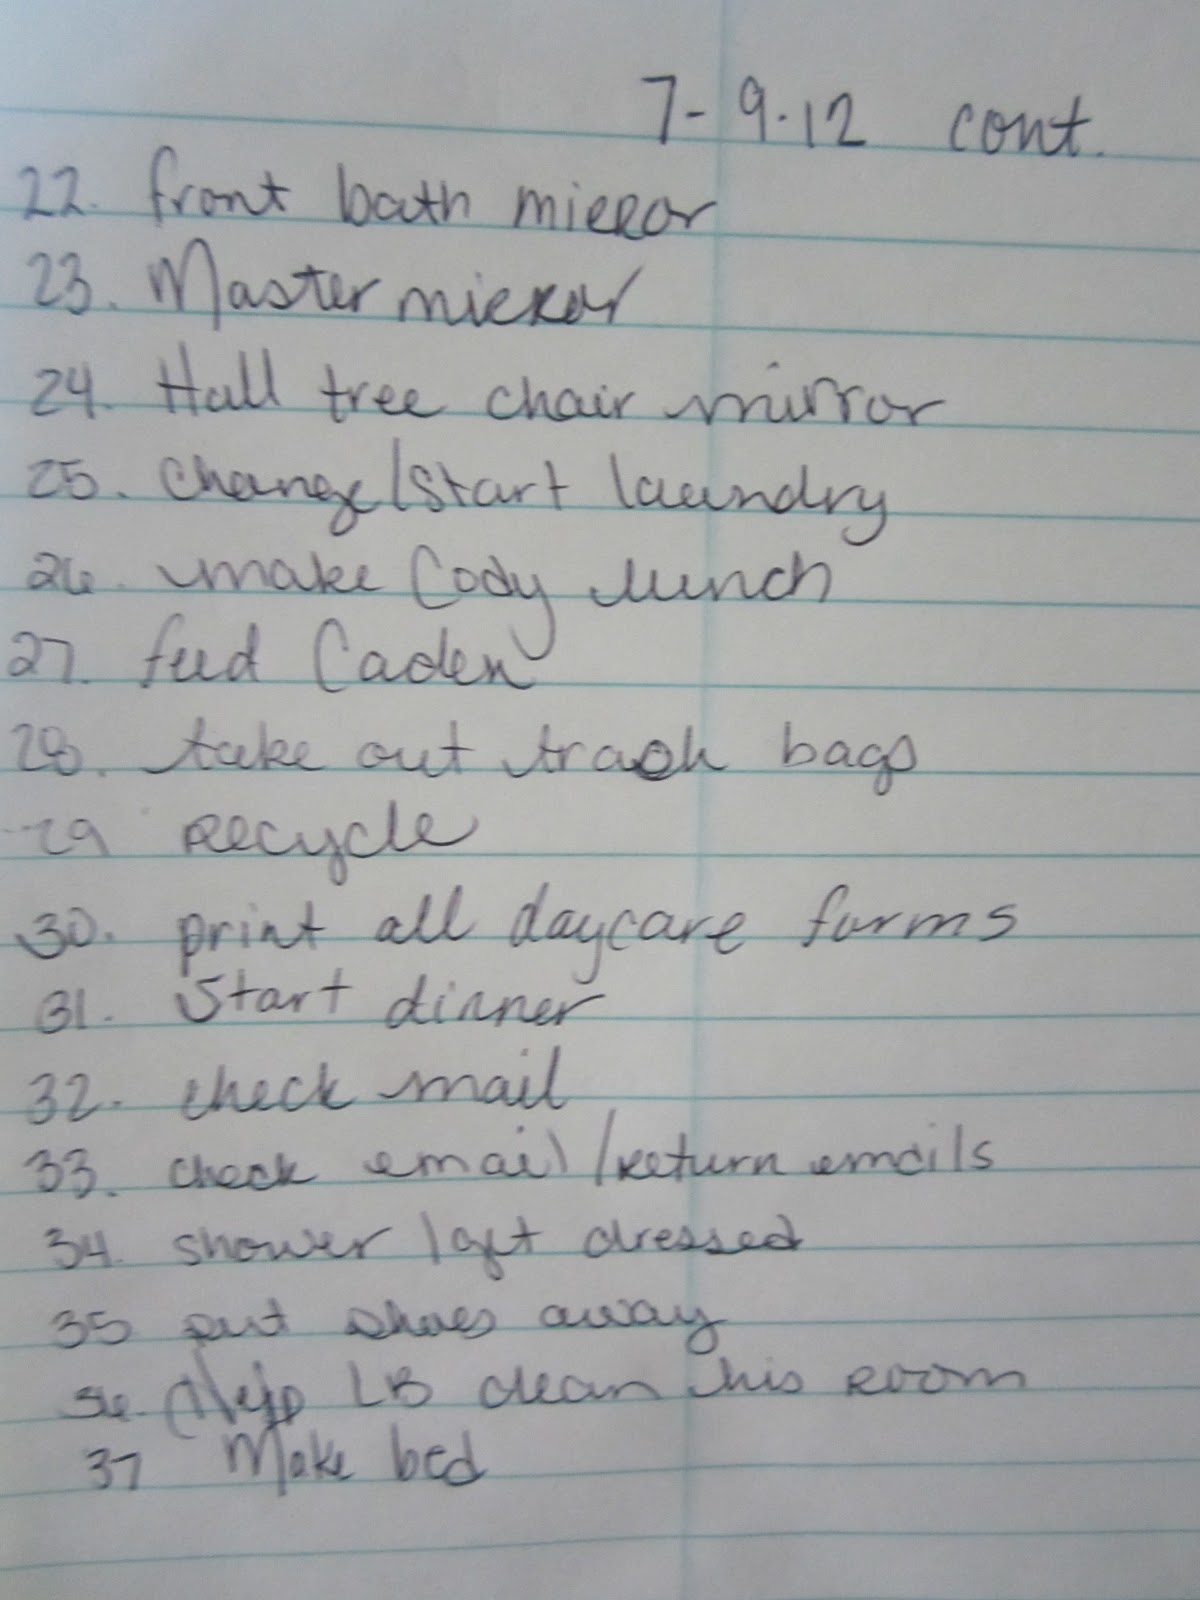 7-9-12 cont.
22. front bath mirror
23. Master mirror
24. Hall tree chair mirror
25. change/start laundry
26. make Cody lunch
27. feed Caden
28. take out trash bags
29 recycle
30. print all daycare forms
31. Start dinner
32. check mail
33. check email/return emails
34. shower/get dressed
35 put shoes away
36. Help LB clean his room
37 Make bed